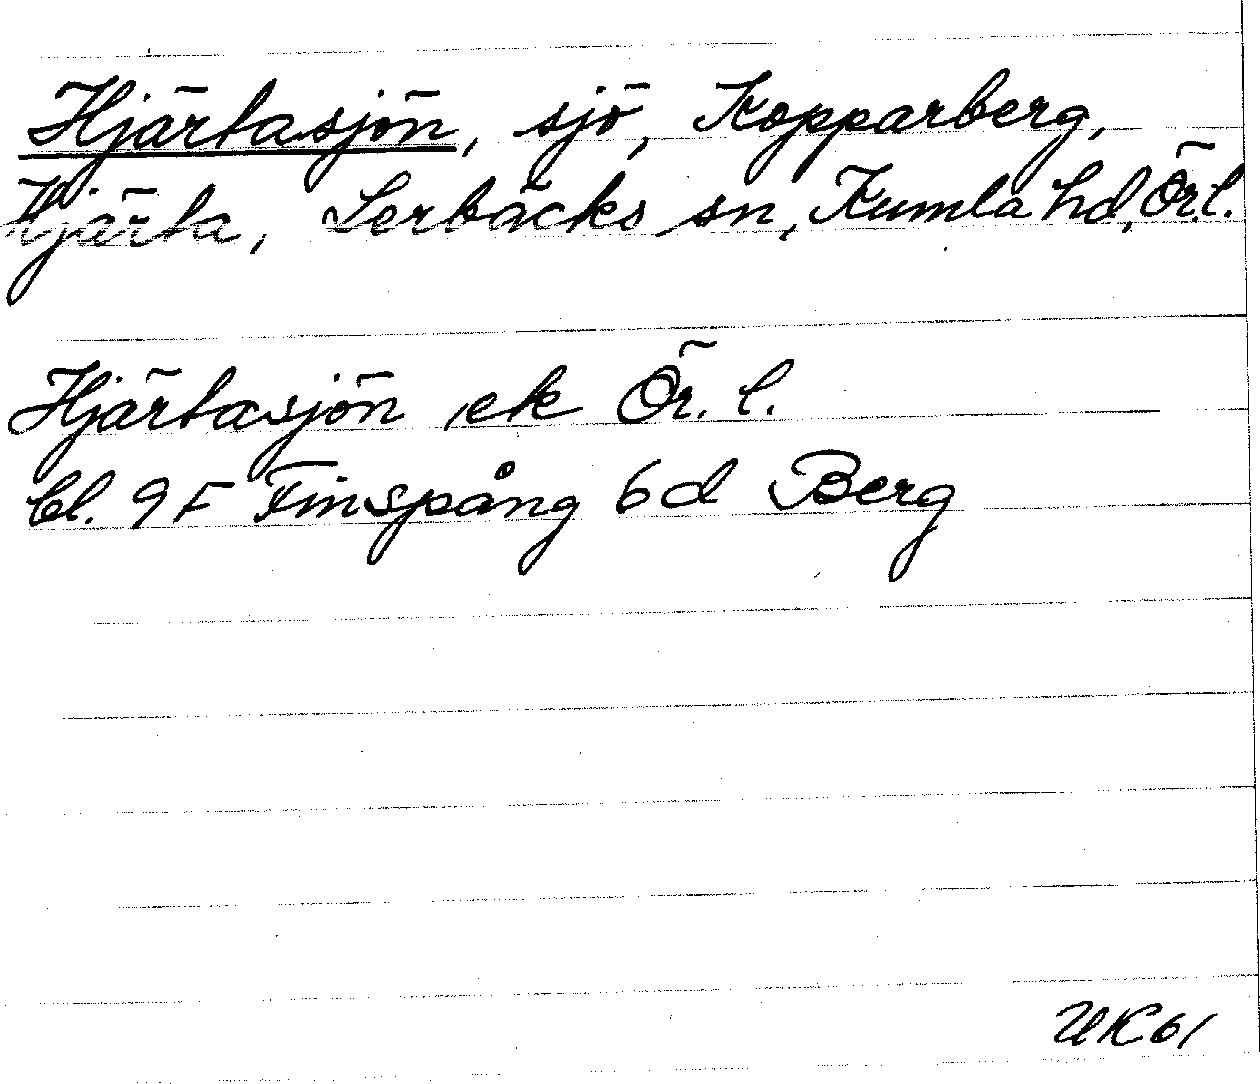 Hjärtasjön, sjö, Kopparberg,
Hjärta, Lerbäcks sn, Kumla hd, Ör.l.
Hjärtasjön ek Ör. l.
bl. 9F Finspång 6d Berg
UK61